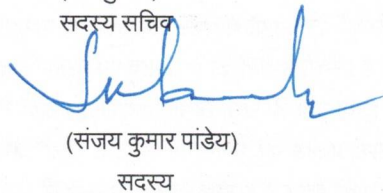 सदस्य सचिव
(संजय कुमार पांडेय)
सदस्य